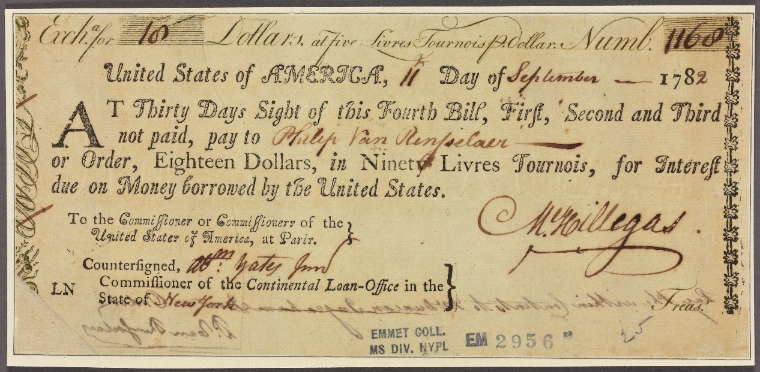 Exchª. for 18 Dollars, at five Livres Tournois p. Dollar. Numb. 1168
United States of AMERICA, 11 Day of September 1782
AT Thirty Days Sight of this Fourth Bill, First, Second and Third
not paid, pay to Philip Van Rensselaer
or Order, Eighteen Dollars, in Ninety Livres Tournois, for Interest
due on Money borrowed by the United States.
To the Commissioner or Commissioners of the
United States of America, at Paris.
M. Hillegas.
Countersigned, Abm. Yates Junr
LN Commissioner of the Continental Loan-Office in the
State of New York
Treas.
EMMET COLL.
MS DIV. NYPL
EM 2956